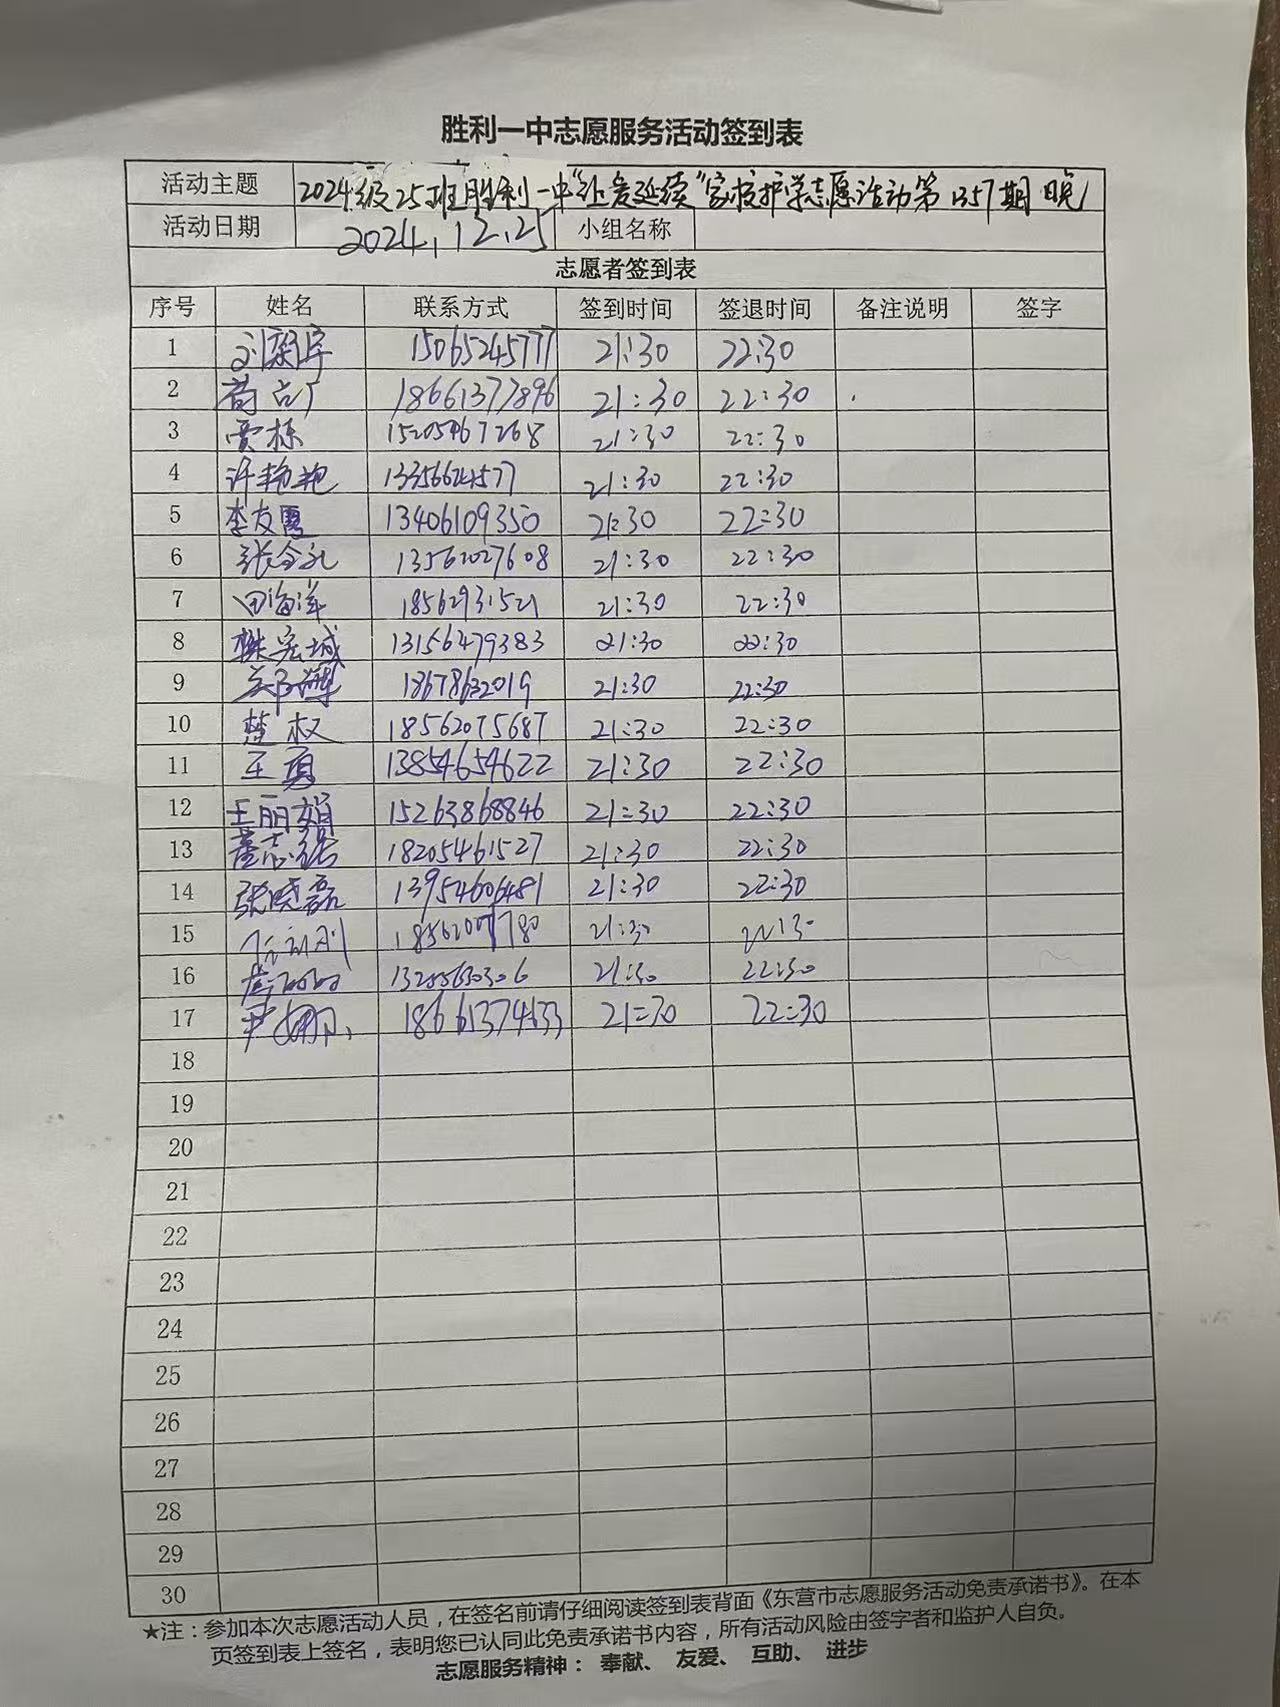 胜利一中志愿服务活动签到表
活动主题 2024级25班胜利一中"让爱延续"家校护学志愿活动第1357期 晚
活动日期 2024.12.25 小组名称
志愿者签到表
序号 姓名 联系方式 签到时间 签退时间 备注说明 签字
1 15065245777 21:30 22:30
2 18661377896 21:30 22:30
3 贾栋 15205467268 21:30 22:30
4 许艳艳 13356624577 21:30 22:30
5 李友 13406109350 21:30 22:30
6 张令礼 13562027608 21:30 22:30
7 田海洋 18562931521 21:30 22:30
8 宏城 13156479383 21:30 22:30
9 18678632019 21:30 22:30
10 楚权 18562075687 21:30 22:30
11 王勇 13854654622 21:30 22:30
12 王丽娟 15263868846 21:30 22:30
13 董志强 18205461527 21:30 22:30
14 张晓磊 13954606481 21:30 22:30
15 21:30
16 21:30 22:30
17 尹娜 18661374633 21:30 22:30
18
19
20
21
22
23
24
25
26
27
28
29
30
★注：参加本次志愿活动人员，在签名前请仔细阅读签到表背面《东营市志愿服务活动免责承诺书》。在本
页签到表上签名，表明您已认同此免责承诺书内容，所有活动风险由签字者和监护人自负。
志愿服务精神：奉献、友爱、互助、进步